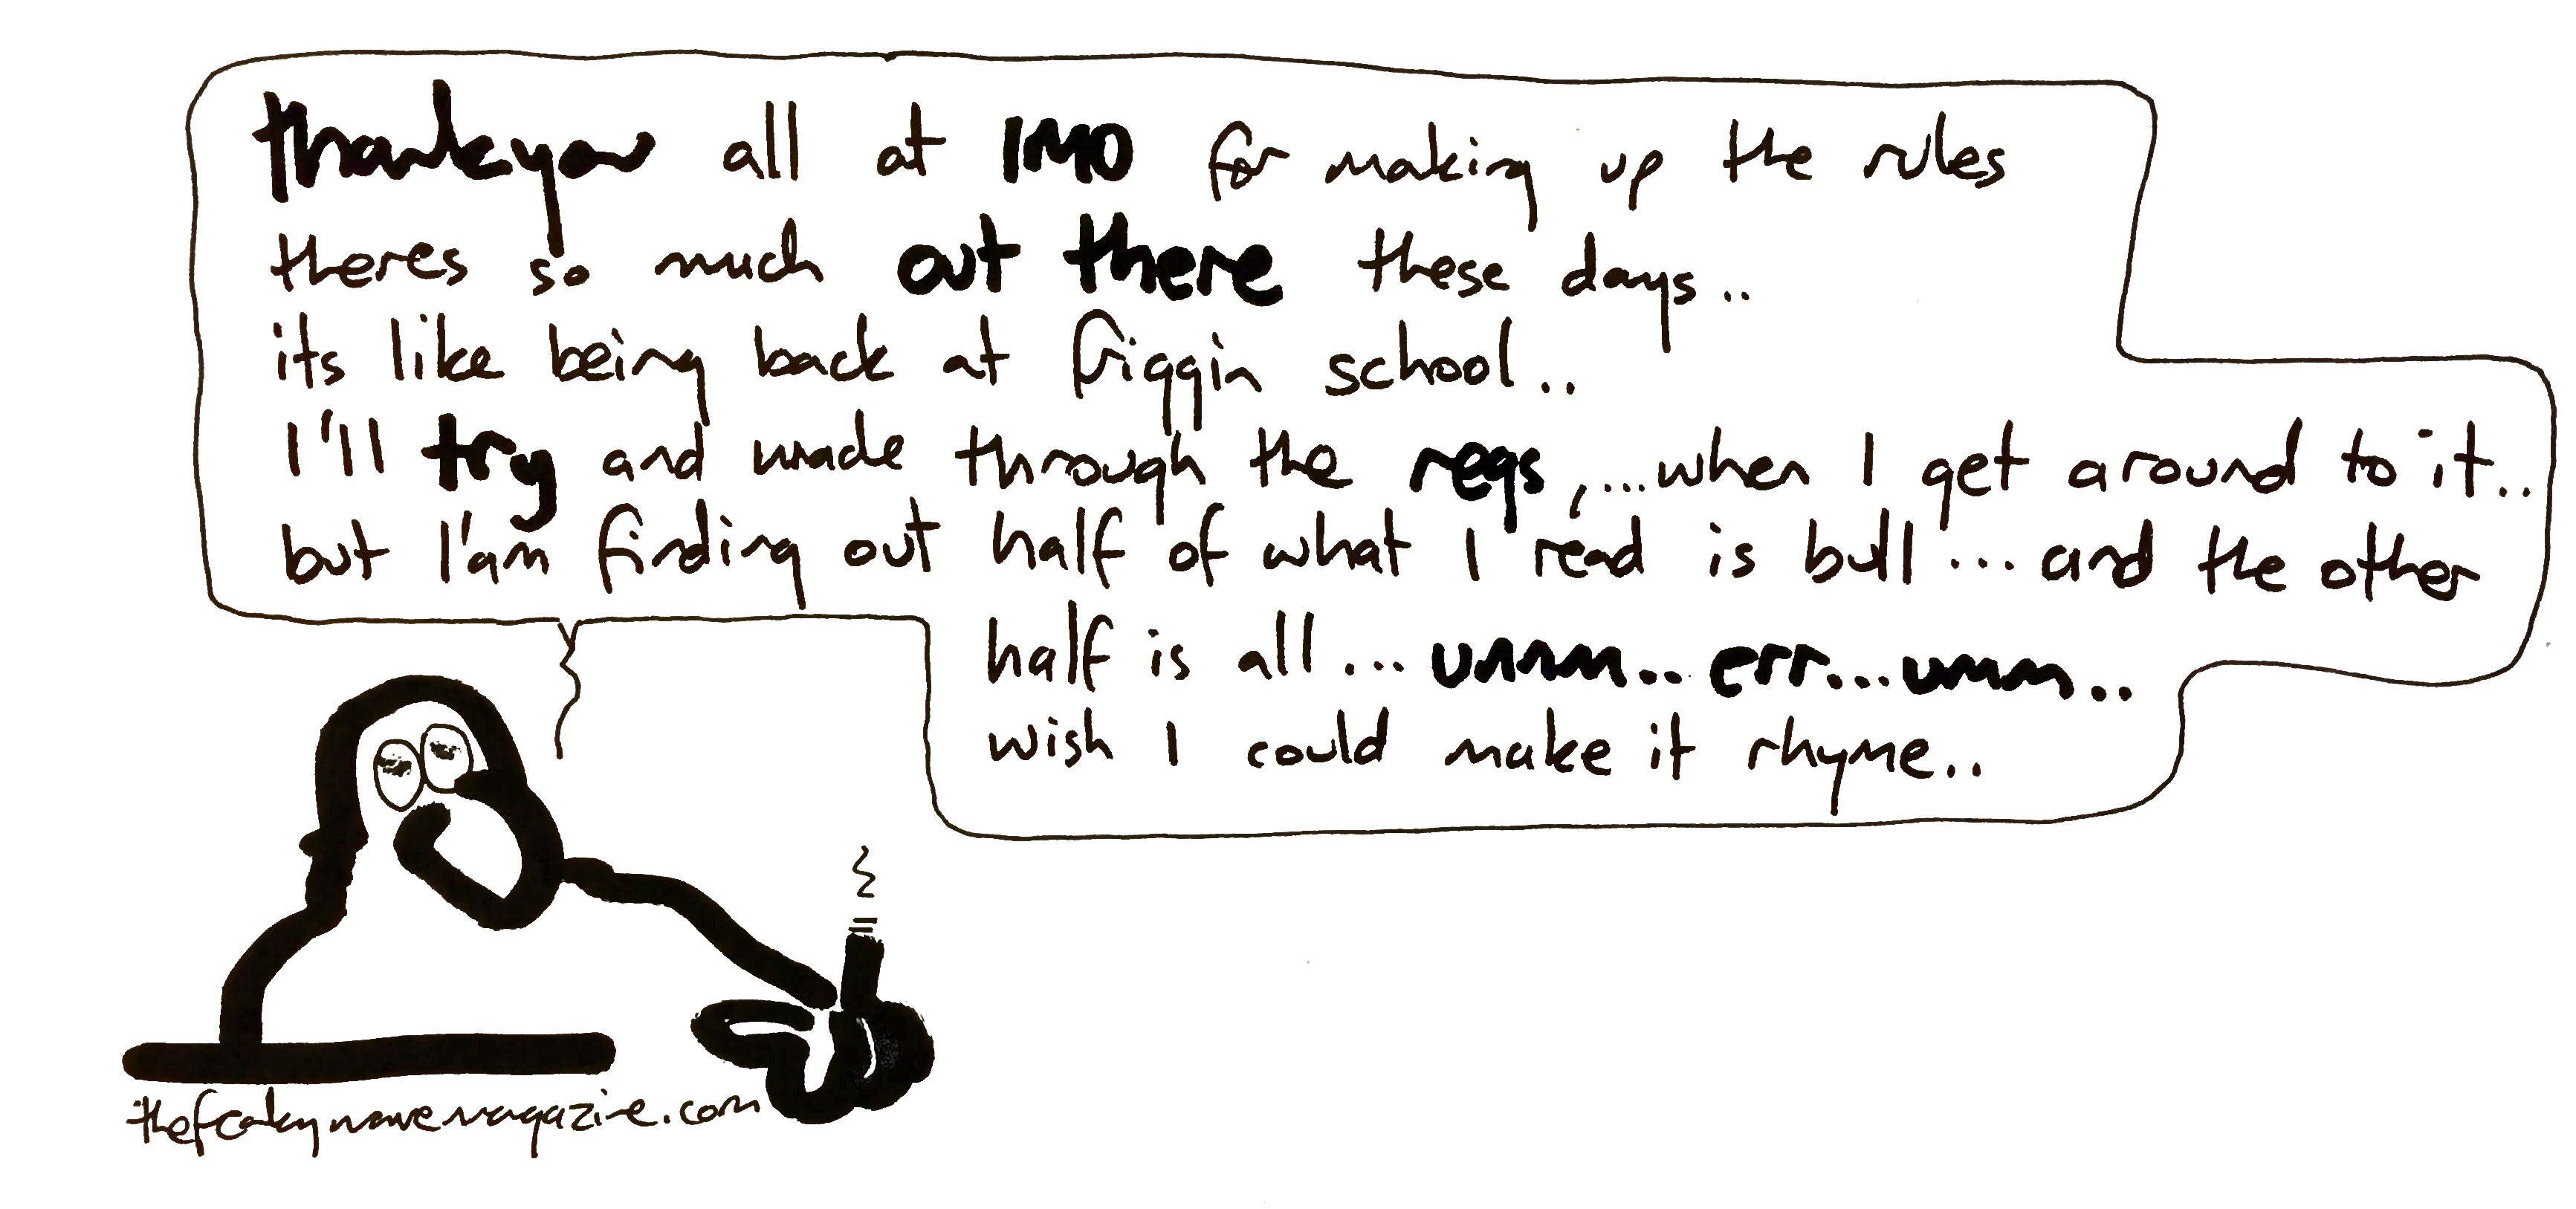 thankyou all at IMO for making up the rules
theres so much out there these days..
its like being back at friggin school..
I'll try and wade through the regs,...when I get around to it..
but I'am finding out half of what I read is bull... and the other
half is all... ummm.. err... umm..
wish I could make it rhyme..